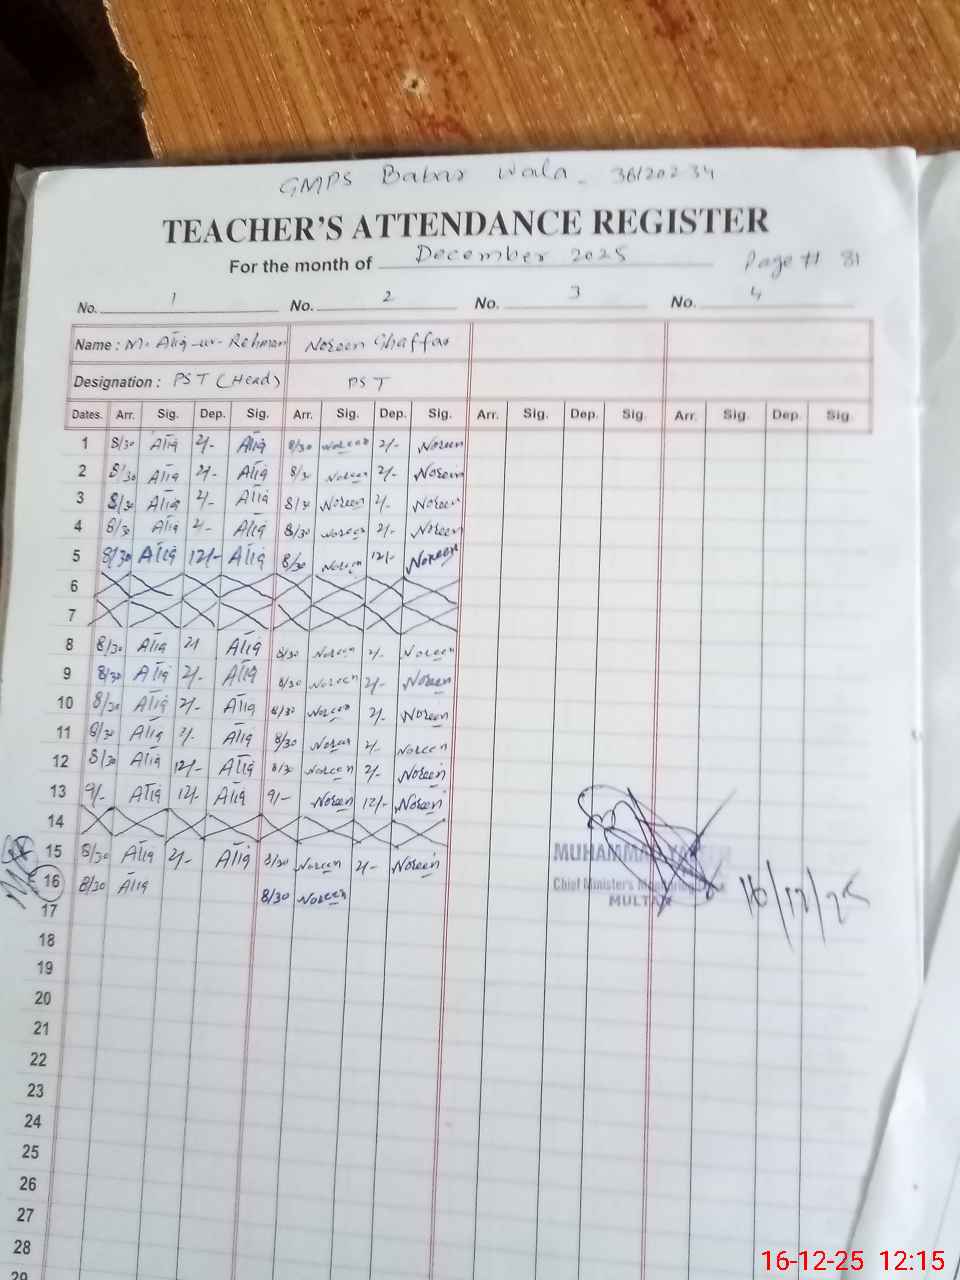 GMPS Babar Wala - 36120234
TEACHER'S ATTENDANCE REGISTER
For the month of December 2025 Page # 81
No. 1 No. 2 No. 3 No. 4
Name : M. Atiq-ur-Rehman Noreen Ghaffar
Designation : PST (Head) PST
Dates. Arr. Sig. Dep. Sig. Arr. Sig. Dep. Sig. Arr. Sig. Dep. Sig. Arr. Sig. Dep. Sig.
1 8/30 Atiq 2/- Atiq 8/30 Noreen 2/- Noreen
2 8/30 Atiq 2/- Atiq 8/30 Noreen 2/- Noreen
3 8/30 Atiq 2/- Atiq 8/30 Noreen 2/- Noreen
4 8/30 Atiq 2/- Atiq 8/30 Noreen 2/- Noreen
5 8/30 Atiq 12/- Atiq 8/30 Noreen 12/- Noreen
6
7
8 8/30 Atiq 2/ Atiq 8/30 Noreen 2/- Noreen
9 8/30 Atiq 2/- Atiq 8/30 Noreen 2/- Noreen
10 8/30 Atiq 2/- Atiq 8/30 Noreen 2/- Noreen
11 8/30 Atiq 2/- Atiq 8/30 Noreen 2/- Noreen
12 8/30 Atiq 12/- Atiq 8/30 Noreen 2/- Noreen
13 9/- Atiq 12/- Atiq 9/- Noreen 12/- Noreen
14
15 8/30 Atiq 2/- Atiq 8/30 Noreen 2/- Noreen
MUHAMMAD
16 8/30 Atiq 8/30 Noreen
Chief Minister's
MULTAN
16/12/25
17
18
19
20
21
22
23
24
25
26
27
28
29
16-12-25 12:15